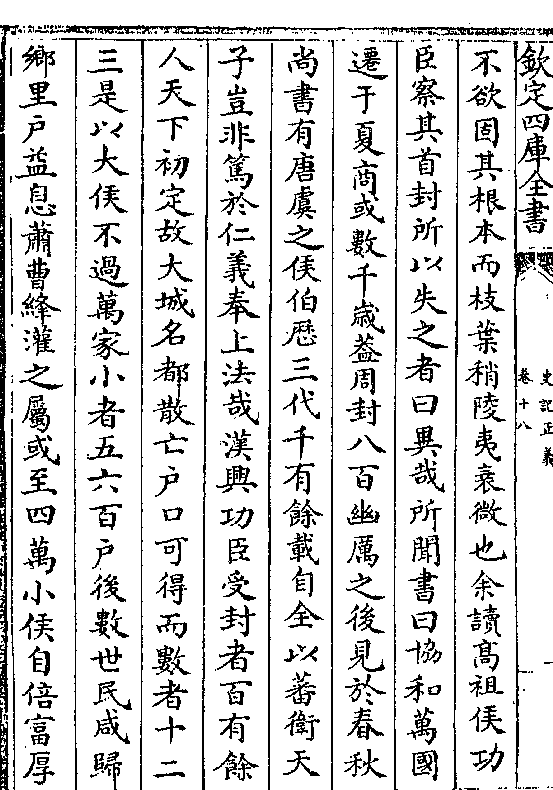 欽定四庫全書
史記正義
卷十八
一
不欲固其根本而枝葉稍陵夷衰微也余讀髙祖侯功
臣察其首封所以失之者曰異哉所聞書曰協和萬國
遷于夏商或數千歳葢周封八百幽厲之後見於春秋
尚書有唐虞之侯伯歴三代千有餘載自全以蕃衛天
子豈非篤於仁義奉上法哉漢興功臣受封者百有餘
人天下初定故大城名都散亡户口可得而數者十二
三是以大侯不過萬家小者五六百户後數世民咸歸
鄉里户益息蕭曹絳灌之屬或至四萬小侯自倍富厚